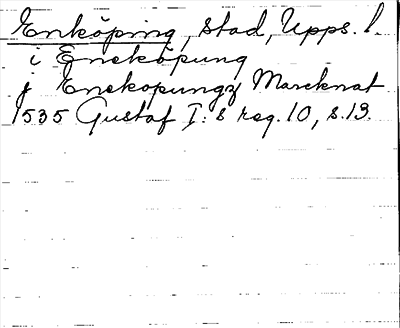 Enköping, stad, Upps. l.
i Eneköpung
j Enekopungz Marcknat
1535 Gustaf I:s reg. 10, s. 19.